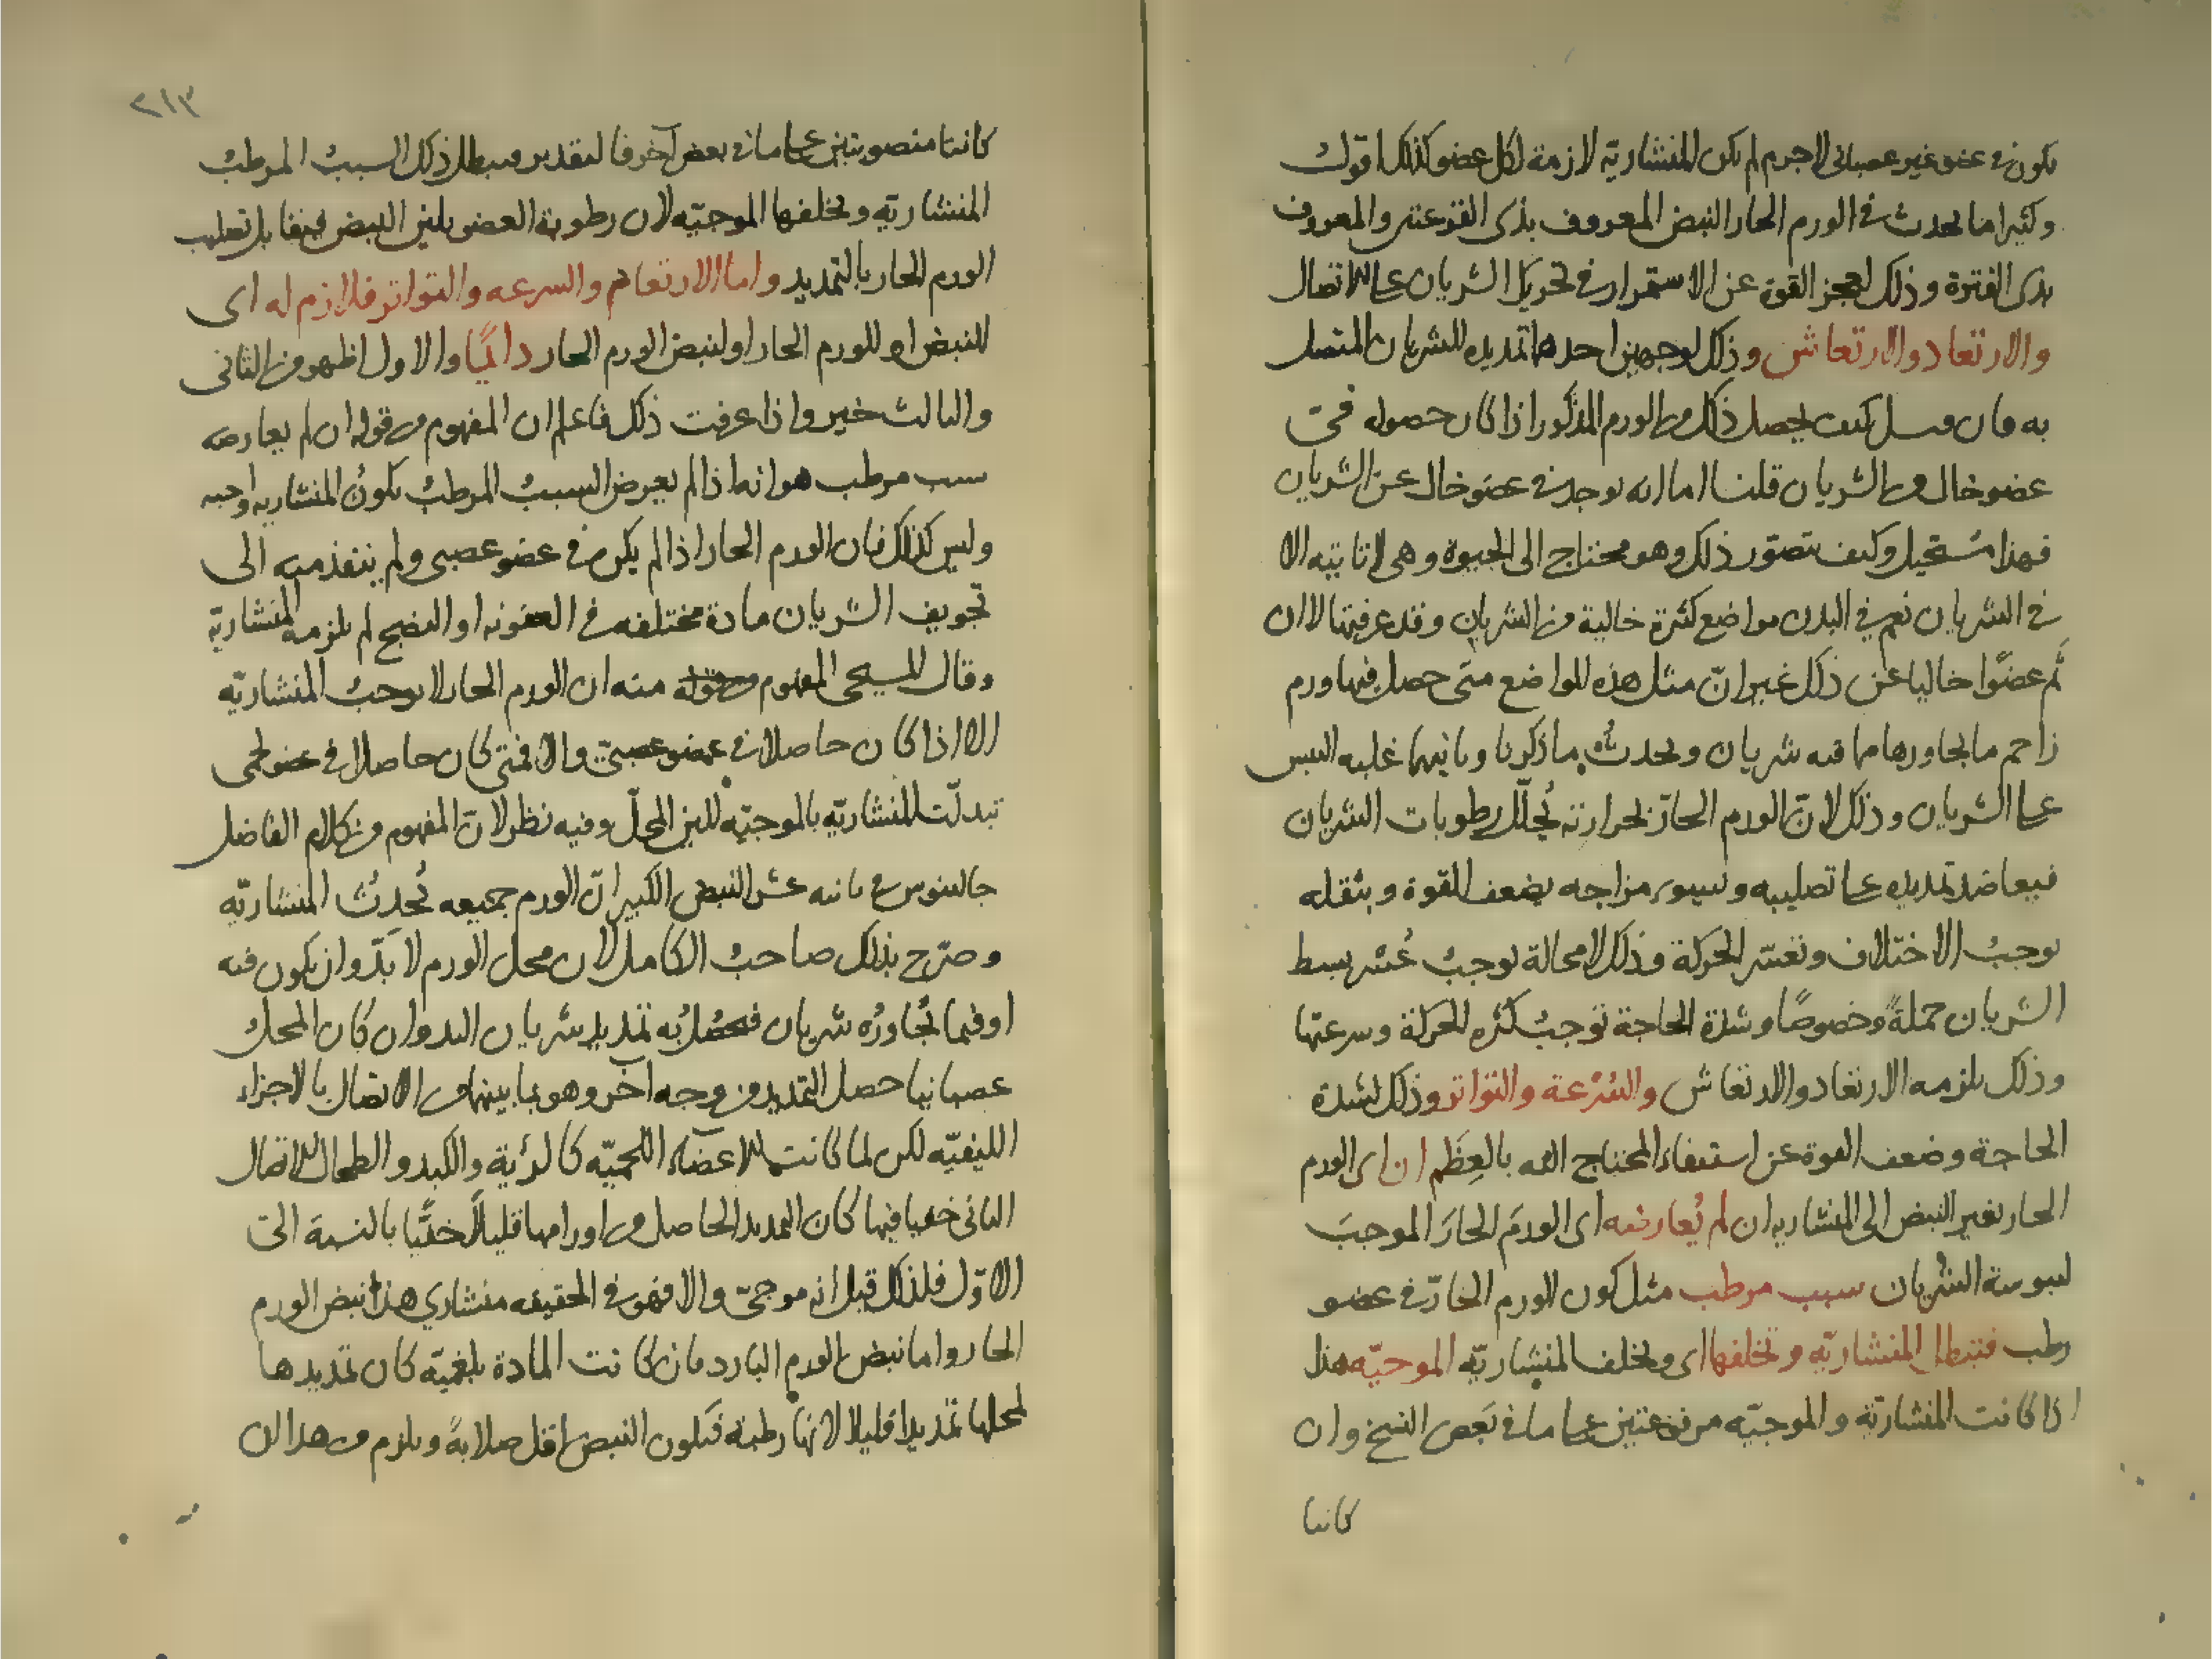 يكون في عضو غير عصباني لاجرم لم يكن المنشارية لازمة لكل عضو كذلك اقول
وكثيرا ما يحدث في الورم الحار النبض المعروف بذي القرعتين والمعروف
بذى الفترة وذلك لعجز القوة عن الاستمرار في تحريك الشريان على الاتصال
والارتعاد والارتعاش وذلك لوجهين احدهما تمديده للشريان المتصل
به فان قيل كيف يحصل ذلك من الورم المذكور اذا كان حصوله في
عضو خال من الشريان قلنا اما انه يوجد في عضو خال عن الشريان
فهذا مستحيل وكيف يتصور ذلك وهو محتاج الى الحيوة وهي لا تاتيه الا
في الشريان نعم في البدن مواضع كثيرة خالية من الشريان وقد عرفتها لا ان
ثم عضوا خاليا عن ذلك غير انّ مثل هذه المواضع متى حصل فيها ورم
زاحم ما يجاورها مما فيه شريان ويحدث ما ذكرنا وثانيهما غلبه اليبس
على الشريان وذلك لانّ الورم الحارّ لحرارته يُحلّل رطوبات الشريان
فيعاضد تمديده على تصليبه ولسوء مزاجه يضعف القوة وبثقله
يوجبُ الاختلاف وتعسّر الحركة وذلك لا محالة يوجبُ عُسر بسط
الشريان جملةً وخصوصًا وشدة الحاجة توجبُ كثره الحركة وسرعتها
وذلك يلزمه الارتعاد والارتعاش والسُرْعة والتواتر وذلك لشدة
الحاجة وضعف القوة عن استيفاء المحتاج اليه بالعِظَم ان اى الورم
الحار يغير النبض الى المنشاريه ان لم يُعارضه اى الورمَ الحارَ الموجبَ
ليبوسة الشريان سبب مرطب مثل كون الورم الحارّ في عضو
رطب فتبطل المنشاريّه وتخلفها اى ويخلف المنشاريّه الموجيّه هذا
اذا كانت المنشاريّه والموجيّه مرفوعتين على ما في بَعض النسخ وان
كانتا
٢١٣
كانتا منصوبتين على ما في بعض آخر فالتقدير فيبطل ذلك السببُ المرطبُ
المنشاريّه ويخلفها الموجيّه لان رطوبة العضو يلين النبض فيفي بل تصليب
الورم الحار بالتمديد واما الارتعاد والسرعه والتواتر فلازم له اى
للنبض او للورم الحار او لنبض الورم الحار دائمًا والاول اظهر من الثانى
والثالث خير واذا عرفت ذلك فاعلم ان المفهوم من قوله ان لم يعارضه
سبب مرطب هو انه اذا لم يعرض السببُ المرطبُ يكونُ المنشاريه واجبه
وليس كذلك فان الورم الحار اذا لم يكن في عضو عصبى ولم ينفذ منه الى
تجويف الشريان مادة مختلفه في العفونه او النضج لم يلزمه المنشاريّة
وقال المسيحى المفهوم من قوله منه ان الورم الحار لا يوجبُ المنشاريّه
الا اذا كان حاصلا في عضو عصبيّ والا فمتى كان حاصلا في عضو لحمى
تبدلّت المنشاريّه بالموجيّه للين المحلّ وفيه نظر لانّ المفهوم من كلام الفاضل
جالينوس في ثانيه عشر النبض الكبير انّ الورم جميعه يُحدثُ المنشاريّه
وصرّح بذلك صاحبُ الكامل لان محل الورم لا بَدّ وان يكون فيه
او فيما يُجاورُه شريان فيحصُل به تمديد شريان البدن وان كان المحلّ
عصبانيا حصل التمديد من وجه آخر وهو ما بينهما من الاتصال بالاجزاء
الليفيّه لكن لما كانت الاعضاء اللحميّه كالرئية والكبد والطحال الاتصال
الثانى خفيا فيها كان التمديد الحاصل من اورامها قليلًا خفيًّا بالنسبة الى
الاوّل فلذلك قيل انه موجىّ والا فهو في الحقيقه منشاري هذا نبض الورم
الحار واما نبض الورم البارد فان كانت المادة بلغميّه كان تمديدها
لمحلها تمديدا قليلا لانها رطبة فيكون النبض اقل صلابةً ويلزم من هذا ان